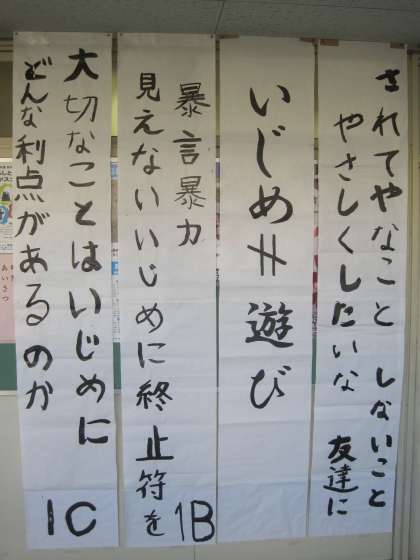 されてやなこと しないこと
やさしくしたいな 友達に
いじめ≠遊び
暴言暴力
見えないいじめに終止符を
1B
大切なことはいじめに
どんな利点があるのか
1C
あいさつ